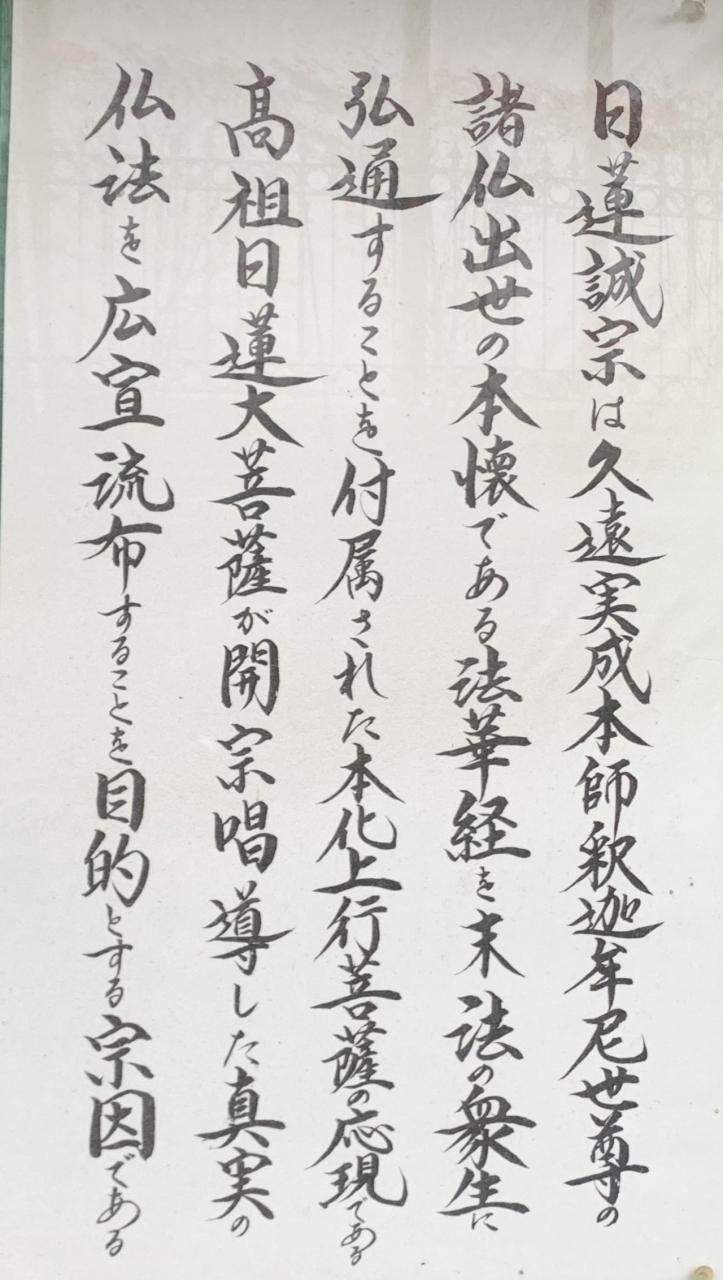 日蓮誠宗は久遠実成本師釈迦牟尼世尊の
諸仏出世の本懐である法華経を末法の衆生に
弘通することを付属された本化上行菩薩の応現である
高祖日蓮大菩薩が開宗唱導した真実の
仏法を広宣流布することを目的とする宗因である